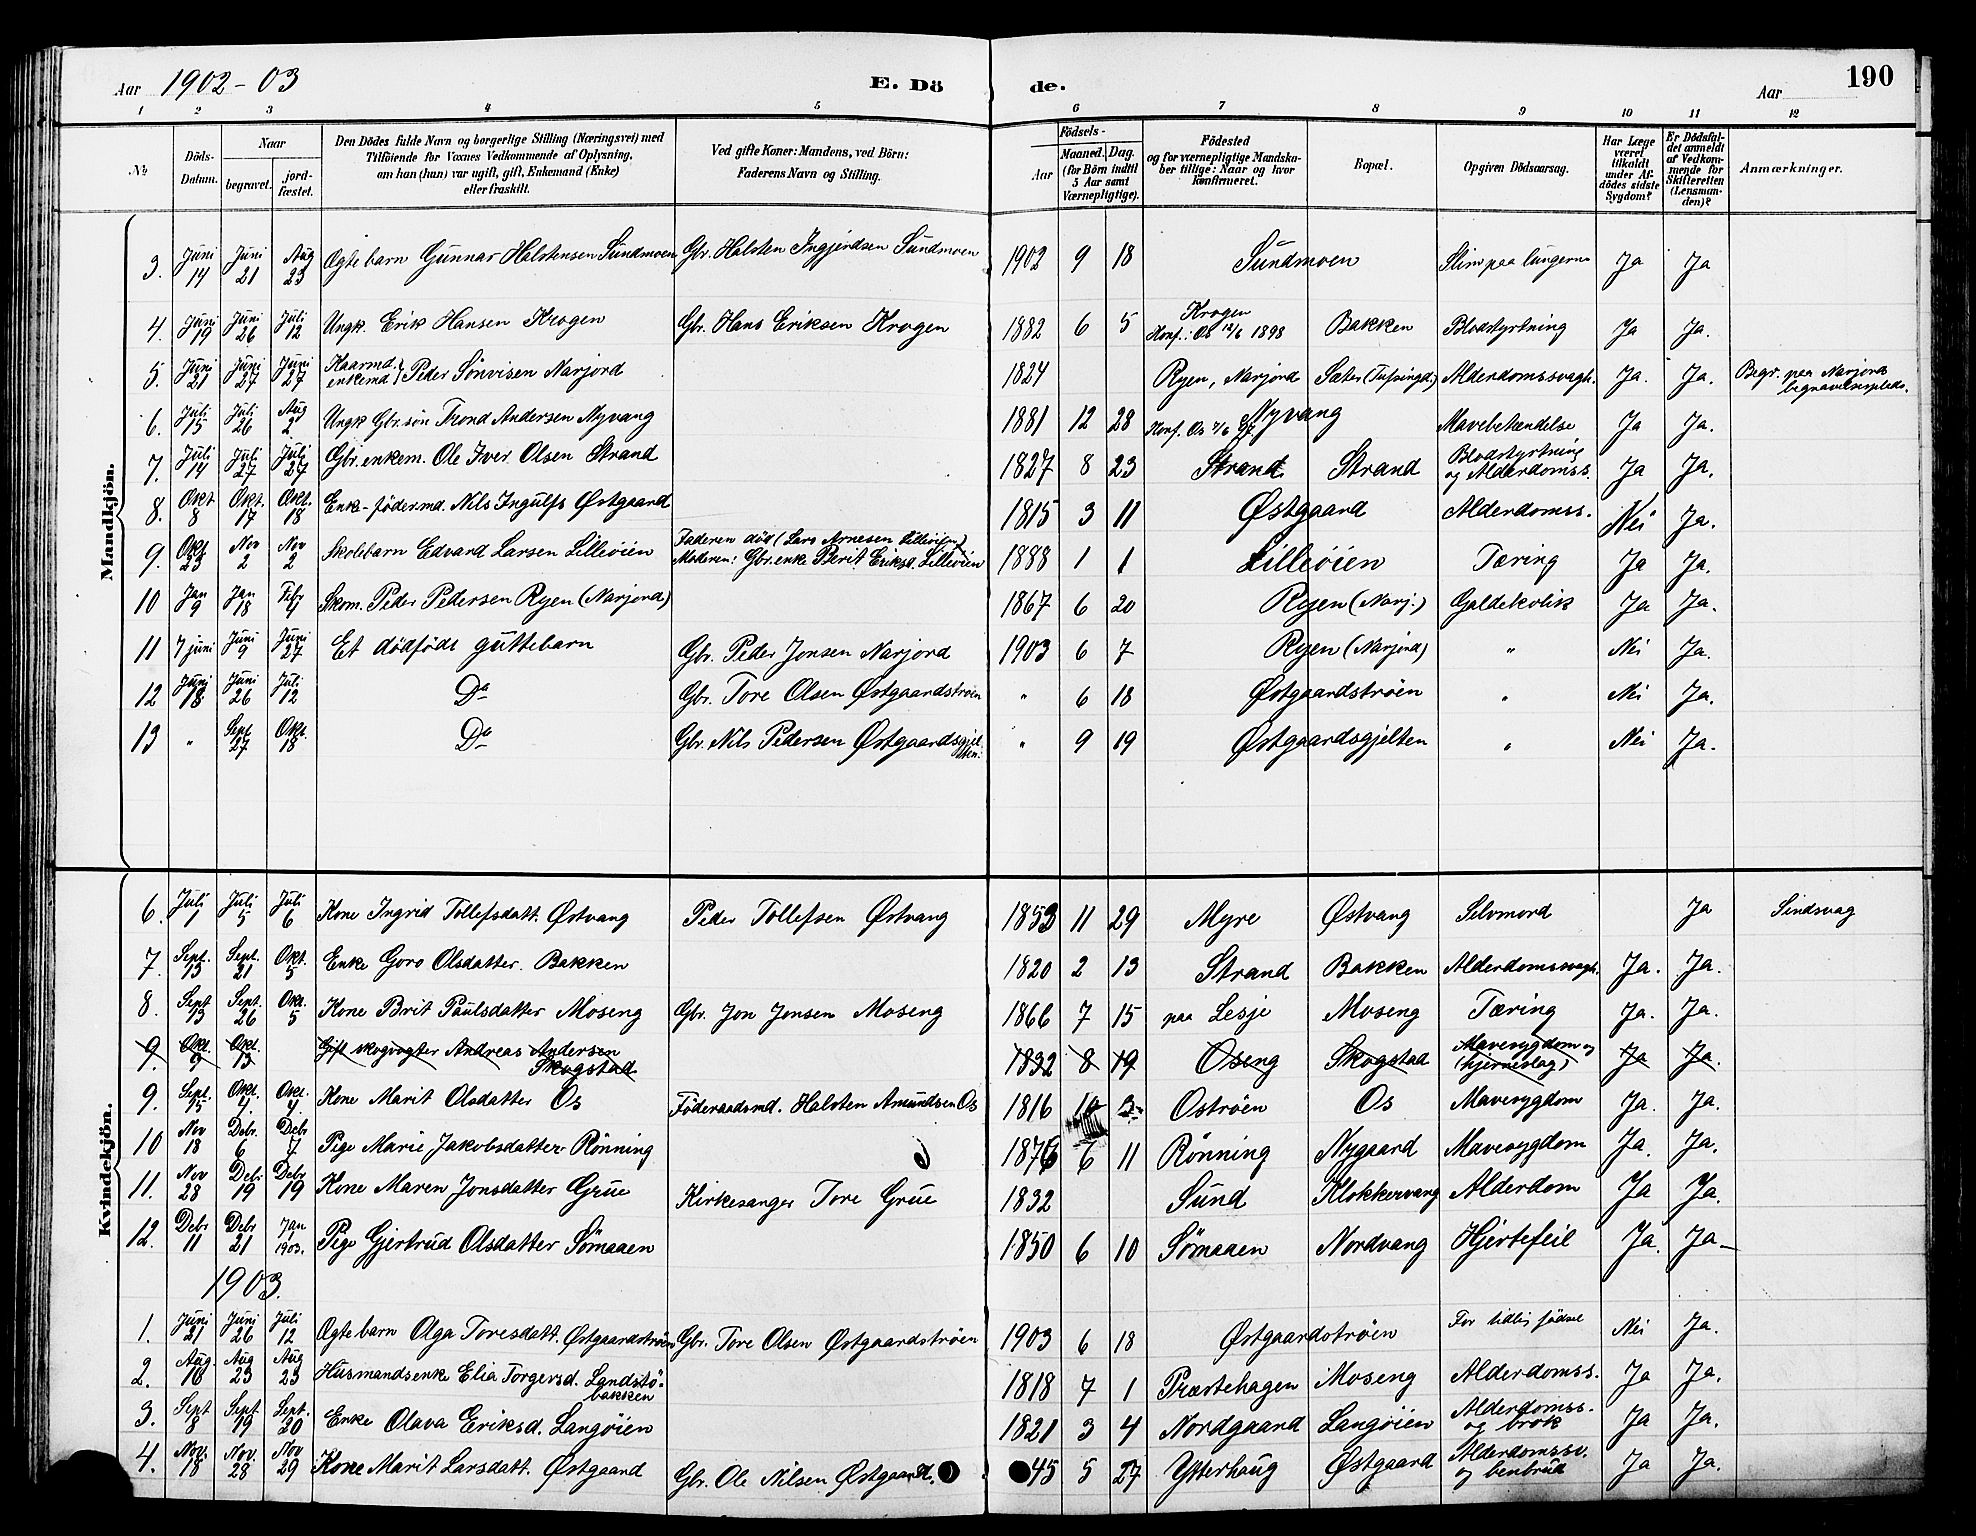 Aar 1902-03 E. Dö de. Aar 190
1 2 3 4 5 6 7 8 9 10 11 12
№ Döds-Datum. Naar begravet. jordfæstet. Den Dödes fulde Navn og borgerlige Stilling (Næringsvei) med Tilföiende for Voxnes Vedkommende af Oplysning, om han (hun) var ugift, gift, Enkemand (Enke) eller fraskilt. Ved gifte Koner: Mandens, ved Börn: Faderens Navn og Stilling. Födsels- Aar Maaned. Dag. (for Börn indtil 5 Aar samt Værnepligtige). Födested og for værnepligtige Mandskaber tillige: Naar og hvor konfirmeret. Bopæl. Opgiven Dödsaarsag. Har Læge været tilkaldt under Afdödes sidste Sygdom? Er Dödsfaldet anmeldt af Vedkommende for Skifteretten (Lensmanden)? Anmærkninger.
Mandkjön.
3. Juni 14 Juni 21 Aug 23 Ægte barn Gunnar Halstensen Sundmoen Gbr. Halsten Ingjerdsen Sundmoen 1902 9 18 Sundmoen Slim paa lungerne Ja Ja
4. Juni 19 Juni 26 Juli 12 Ungk. Erik Hansen Krogen Gbr. Hans Eriksen Krogen 1882 6 5 Krogen Konf.: Os 12/6 1898 Bakken Blodstyrtning Ja Ja.
5. Juni 21 Juni 27 Juni 27 Kaarmd. enkemd } Peder Sönvisen Narjord 1824 Ryen, Narjord Sæter (Tufsingd.) Alderdomssvagh. Ja. Ja. Begr. paa Narjords begravelsesplads.
6. Juli 15 Juli 26 Aug 2 Ungk Gbr. sön Trond Andersen Nyvang 1881 12 28 Nyvang Konf. Os Mavebetændelse Ja Ja.
7. Juli 14 Juli 27 Juli 27 Gbr. enkem. Ole Iver Olsen Strand 1827 8 23 Strand Strand Blodstyrtning og Alderdomss. Ja Ja.
8. Okt 8 Okt. 17 Okt. 18 Enke-födermd. Nils Ingulfs Østgaard 1815 3 11 Østgaard Alderdomss. Nei Ja.
9. Okt 23 Nov 2 Nov 2 Skolebarn Edvard Larsen Lilleöien Faderen död (Lars Arnesen Lilleöien) Moderen: Gbr. enke Berit Eriksd. Lilleöien 1888 1 1 Lilleöien Tæring Ja Ja.
10 Jan 9 Jan 18 Febr 4 Skom. Peder Pedersen Ryen (Narjord) 1867 6 20 Ryen (Narj.) Galdekolik Ja Ja.
11 7 juni Juni 9 Juni 27 Et dödföds guttebarn Gbr. Peder Jonsen Narjord 1903 6 7 Ryen (Narjord) " Nei Ja.
12 Juni 18 Juni 26 Juli 12 Do Gbr. Tore Olsen Østgaardströen " 6 18 Østgaardströen " Nei Ja.
13 " Sept 27 Okt. 18 Do Gbr. Nils Pedersen Østgaardsgjelten " 9 19 Østgaardsgjelten " Nei Ja.
Kvindekjön.
6. Juli 1 Juli 5 Juli 6 Kone Ingrid Tollefsdatt. Østvang Peder Tollefsen Østvang 1853 11 29 Myre Østvang Selvmord Ja Sindsvag
7. Sept. 13 Sept. 21 Okt. 5 Enke Goro Olsdatter. Bakken 1820 2 13 Strand Bakken Alderdomssvagh. Ja. Ja.
8 Sept 13 Sept. 26 Okt. 5 Kone Brit Paulsdatter Moseng Gbr. Jon Jonsen Moseng 1866 7 15 paa Lesje Moseng Tæring Ja. Ja.
9. Okt. 9 Okt. 13 Gift skogvogter Andreas Andersen Skogstad 1832 8 19 Oseng Skogstad Mavesygdom og (hjerneslag) Ja Ja.
9. Sept. 25 Okt. 1. Okt. 4. Kone Marit Olsdatter Os Föderaadsmd. Halsten Amundsen Os 1816 Oströen Os Mavesygdom Ja. Ja.
10 Nov 18 Debr. 6 Debr 7 Pige Marie Jakobsdatter Rönning 1876 6 11 Rönning Nygaard Mavesygdom Ja. Ja.
11. Nov 28 Debr 19 Debr 19 Kone Maren Jonsdatter Grue Kirkesanger Tore Grue 1832 Sund Klokkervang Alderdom Ja Ja.
12. Debr 11 Debr 21 Jan 1903. Pige Gjertrud Olsdatter Sömaaen 1850 6 10 Sömaaen Nordvang Hjertefeil Ja. Ja
1903.
1. Juni 21 Juni 26 Juli 12 Ægte barn Olga Toresdatt. Østgaardströen Gbr. Tore Olsen Østgaardströen 1903 6 18 Østgaardströen For tidlig födsel Nei Ja.
2. Aug. 16 Aug 23 Aug 23 Husmandsenke Elia Torgersd. Landstö-bakken 1818 7 1 Præstehagen Moseng Alderdomss. Ja Ja.
3. Sept 8 Sept. 19 Sept. 20 Enke Olava Eriksd. Langöien 1821 3 4 Nordgaard Langöien Alderdomss. og brok Ja Ja.
4. Nov. 18 Nov. 28 Nov 29 Kone Marit Larsdatt. Østgaard Gbr. Ole Nilsen Østgaard. 45 5 27 Ytterhaug Østgaard Alderdomssv. og benbrud Ja Ja.